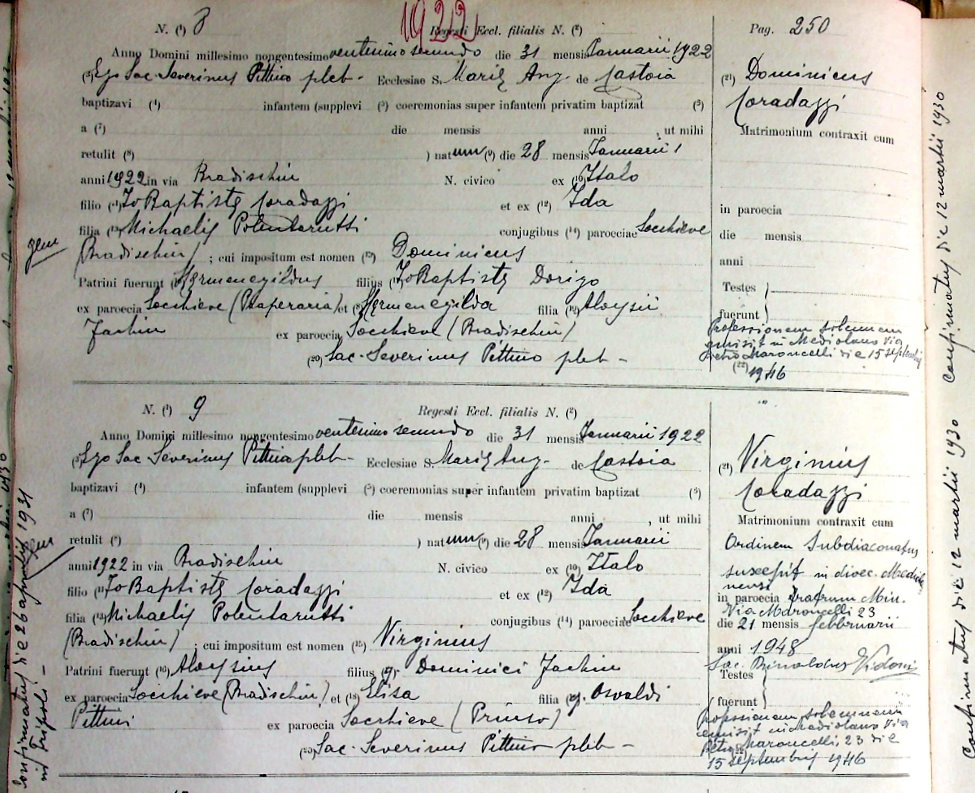 1922
N. (¹) 8 Regesti Eccl. filialis N. (²) Pag. 250
Anno Domini millesimo nongentesimo ventesimo secundo die 31 mensis Januarii 1922
(³) Ego Sac. Severinus Pittino pleb- Ecclesiae S. Marię Ang. de Castoia
baptizavi (⁴) infantem (supplevi (⁵) coeremonias super infantem privatim baptizat (⁶)
a (⁷) die mensis anni , ut mihi
retulit (⁸) ) natum (⁹) die 28 mensis Januarii
anni 1922 in via Bradischin N. civico ex (¹⁰) Italo
filio (¹¹) Jo Baptistę Coradazzi et ex (¹²) Ida
filia (¹³) Michaelis Polentarutti conjugibus (¹⁴) paroeciae Socchieve
(Bradischin) ; cui impositum est nomen (¹⁵) Dominicus
Patrini fuerunt (¹⁶) Hermenegildus filius (¹⁷) Jo Baptistę Dorigo
ex paroecia Socchieve (Caprania) et (¹⁸) Hermenegilda filia (¹⁹) Aloysii
Jachin ex paroecia Socchieve (Bradischin)
(²⁰) Sac. Severinus Pittino pleb-
(²¹) Dominicus
Coradazzi
Matrimonium contraxit cum
in paroecia
die mensis
anni
Testes
fuerunt
Professionem solemnem
emisit in Mediolano Via
Pietro Maroncelli die 15 septembris
(²²) 1946
gem
N. (¹) 9 Regesti Eccl. filialis N. (²)
Anno Domini millesimo nongentesimo ventesimo secundo die 31 mensis Januarii 1922
(³) Ego Sac. Severinus Pittino pleb- Ecclesiae S. Marię Ang. de Castoia
baptizavi (⁴) infantem (supplevi (⁵) coeremonias super infantem privatim baptizat (⁶)
a (⁷) die mensis anni , ut mihi
retulit (⁸) ) natum (⁹) die 28 mensis Januarii
anni 1922 in via Bradischin N. civico ex (¹⁰) Italo
filio (¹¹) Jo Baptistę Coradazzi et ex (¹²) Ida
filia (¹³) Michaelis Polentarutti conjugibus (¹⁴) paroeciae Socchieve
(Bradischin) ; cui impositum est nomen (¹⁵) Virginius
Patrini fuerunt (¹⁶) Aloysius filius (¹⁷) q. Dominici Jachin
ex paroecia Socchieve (Bradischin) et (¹⁸) Elisa filia (¹⁹) q. Osvaldi
Pittini ex paroecia Socchieve (Priuso)
(²⁰) Sac. Severinus Pittino pleb-
(²¹) Virginius
Coradazzi
Matrimonium contraxit cum
Ordinem Subdiaconatus
suscepit in dioec. Mediola
nensi
in paroecia Fratrum Min.
Via Maroncelli 23
die 21 mensis februarii
anni 1948
Sac. Rinaldus Vidoni
Testes
fuerunt
Professionem solemnem
emisit in Mediolano Via
Petro Maroncelli, 23 die
15 septembris 1946
gem
Confirmatus die 26 aprilis 1931
in Tripoli -
Confirmatus die 12 martii 1930
Confirmatus die 12 martii 1930